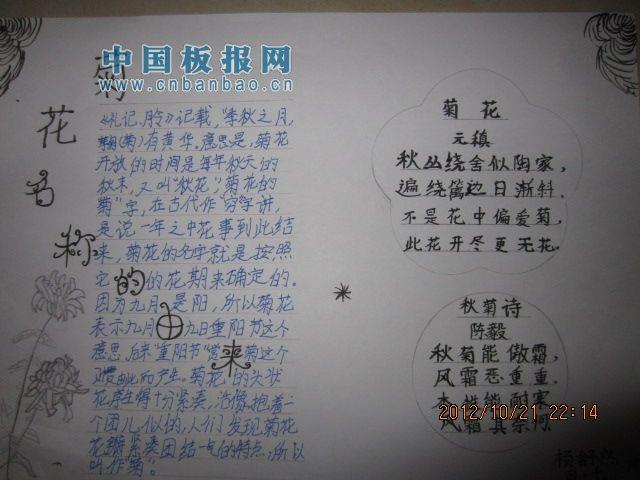 中国板报网
www.cnbanbao.cn
菊
花
名
称
的
由
来
《礼记.月令》记载,"季秋之月,
鞠(菊)有黄华。意思是,菊花
开放的时间是每年秋天的
秋末,又叫"秋花"。菊花的
菊"字,在古代作"穷"字讲,
是说一年之中花事到此结
束,菊花的名字就是按照
它的花期来确定的。
因为九月是阳,所以菊花
表示九月九日重阳节这个
意思,后来"重阳节"赏菊这个
习惯由此而产生。菊花的头状
花序生得十分紧凑,活像抱着一
个团儿似的,人们发现菊花
花瓣紧凑团结一气的特点,所以
叫作"菊"。
菊花
元稹
秋丛绕舍似陶家,
遍绕篱边日渐斜.
不是花中偏爱菊,
此花开尽更无花.
秋菊诗
陈毅
秋菊能傲霜,
风霜恶重重.
本性能耐寒
风霜其奈何
2012/10/21 22:14